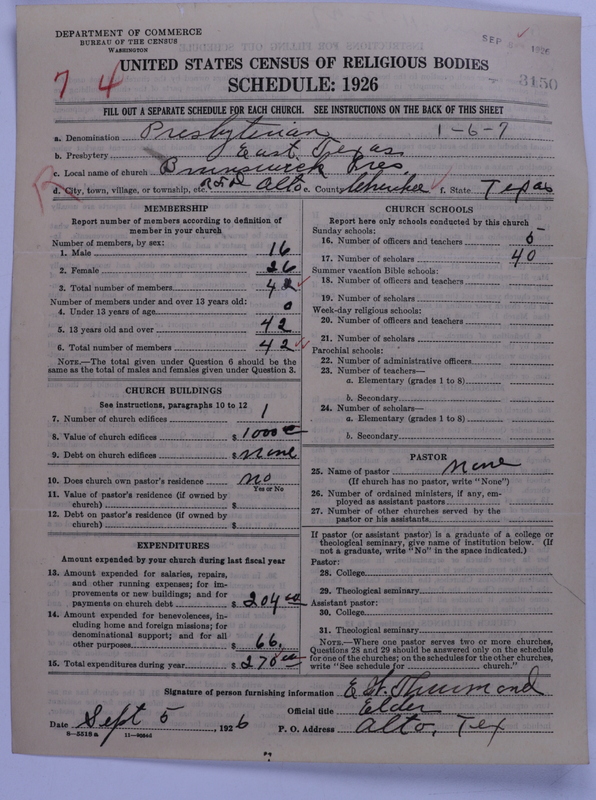 DEPARTMENT OF COMMERCE
BUREAU OF THE CENSUS
WASHINGTON
SEP 1926
7 4
UNITED STATES CENSUS OF RELIGIOUS BODIES
SCHEDULE: 1926
3150
FILL OUT A SEPARATE SCHEDULE FOR EACH CHURCH. SEE INSTRUCTIONS ON THE BACK OF THIS SHEET
a. Denomination Presbyterian 1-6-7
b. Presbytery East Texas
c. Local name of church Brunswick Pres
d. City, town, village, or township, etc. R.F.D Alto e. County Cherokee f. State Texas
MEMBERSHIP
Report number of members according to definition of
member in your church
Number of members, by sex:
1. Male 16
2. Female 26
3. Total number of members 42
Number of members under and over 13 years old:
4. Under 13 years of age 0
5. 13 years old and over 42
6. Total number of members 42
NOTE.—The total given under Question 6 should be the
same as the total of males and females given under Question 3.
CHURCH BUILDINGS
See instructions, paragraphs 10 to 12
7. Number of church edifices 1
8. Value of church edifices $ 1000
9. Debt on church edifices $ None
10. Does church own pastor's residence? no
Yes or No
11. Value of pastor's residence (if owned by
church) $
12. Debt on pastor's residence (if owned by
church) $
EXPENDITURES
Amount expended by your church during last fiscal year
13. Amount expended for salaries, repairs,
and other running expenses; for im-
provements or new buildings; and for
payments on church debt $ 204 00
14. Amount expended for benevolences, in-
cluding home and foreign missions; for
denominational support; and for all
other purposes $ 66.
15. Total expenditures during year $ 270 00
CHURCH SCHOOLS
Report here only schools conducted by this church
Sunday schools:
16. Number of officers and teachers 5
17. Number of scholars 40
Summer vacation Bible schools:
18. Number of officers and teachers
19. Number of scholars
Week-day religious schools:
20. Number of officers and teachers
21. Number of scholars
Parochial schools:
22. Number of administrative officers
23. Number of teachers—
a. Elementary (grades 1 to 8)
b. Secondary
24. Number of scholars—
a. Elementary (grades 1 to 8)
b. Secondary
PASTOR
25. Name of pastor None
(If church has no pastor, write "None")
26. Number of ordained ministers, if any, em-
ployed as assistant pastors
27. Number of other churches served by the
pastor or his assistants
If pastor (or assistant pastor) is a graduate of a college or
theological seminary, give name of institution below. (If
not a graduate, write "No" in the space indicated.)
Pastor:
28. College
29. Theological seminary
Assistant pastor:
30. College
31. Theological seminary
NOTE.—Where one pastor serves two or more churches,
Questions 28 and 29 should be answered only on the schedule
for one of the churches; on the schedules for the other churches,
write "See schedule for church."
Signature of person furnishing information E. W. Thurmond
Official title Elder
Date Sept 5, 1926 P. O. Address Alto, Tex
8-5518a